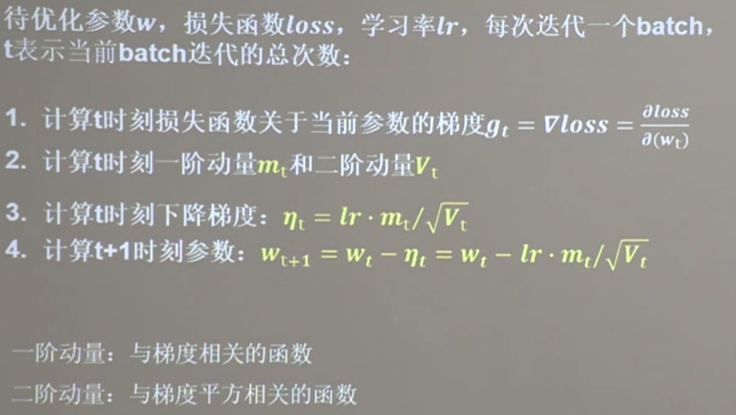 待优化参数w，损失函数loss，学习率lr，每次迭代一个batch，
t表示当前batch迭代的总次数：
1. 计算t时刻损失函数关于当前参数的梯度gₜ = ∇loss = ∂loss/∂(wₜ)
2. 计算t时刻一阶动量mₜ和二阶动量Vₜ
3. 计算t时刻下降梯度：ηₜ = lr · mₜ/√Vₜ
4. 计算t+1时刻参数：wₜ₊₁ = wₜ − ηₜ = wₜ − lr · mₜ/√Vₜ
一阶动量：与梯度相关的函数
二阶动量：与梯度平方相关的函数